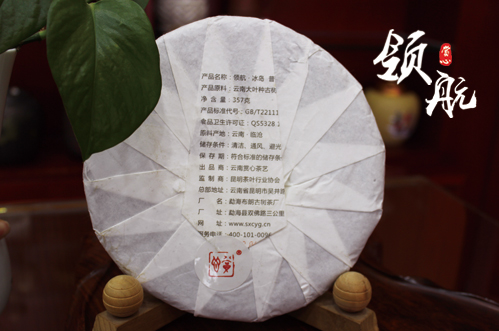 领航
赏心
产品名称：领航·冰岛 普
产品原料：云南大叶种古树
净 含 量：357克
产品标准代号：GB/T22111
食品卫生许可证：QS5328 1
原料产地：云南·临沧
储存条件：清洁、通风、避光
保 存 期：符合标准的储存条
出 品 商：云南赏心茶艺
监 制 商：昆明茶叶行业协会
总部地址：云南省昆明市泉井园
厂 名：勐海布朗古树茶厂
厂 址：勐海县双佛路三公里
网 址：www.sxcyg.cn
服务电话：400-101-0096